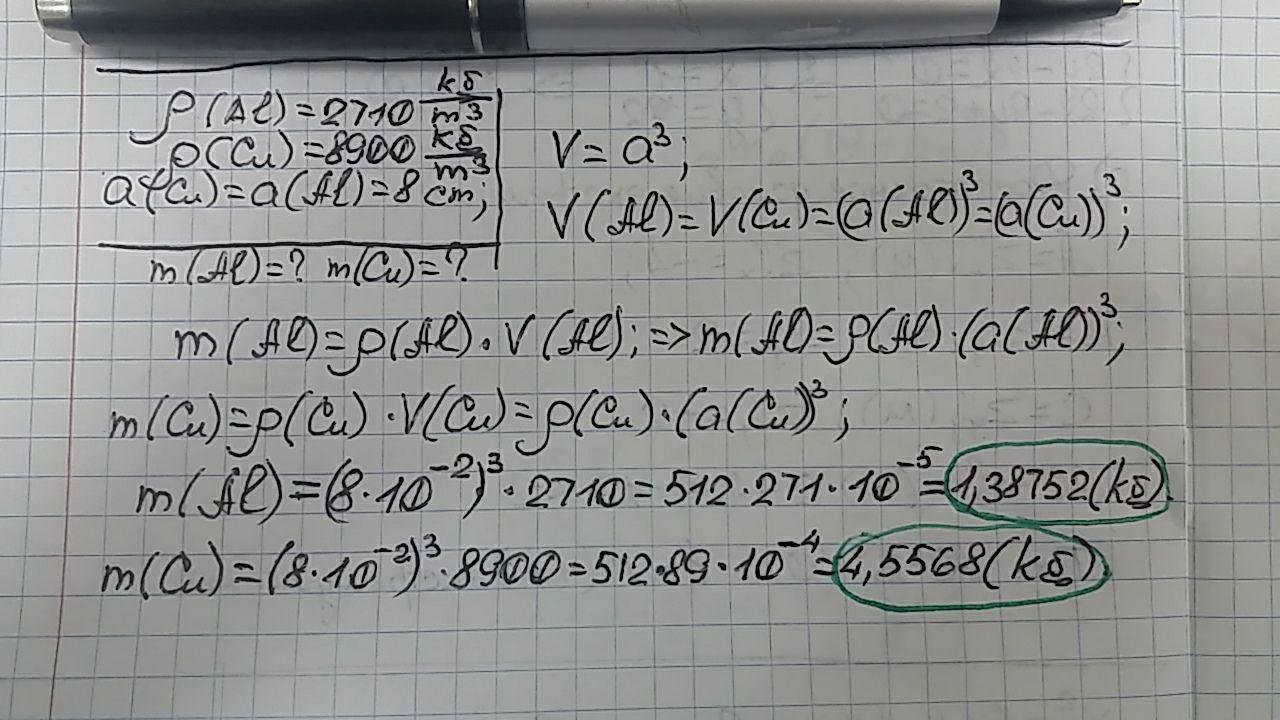 ρ(Al)=2710 kg/m³
ρ(Cu)=8900 kg/m³
a(Cu)=a(Al)=8 cm;
m(Al)=? m(Cu)=?
V=a³;
V(Al)=V(Cu)=(a(Al))³=(a(Cu))³;
m(Al)=ρ(Al)·V(Al);=>m(Al)=ρ(Al)·(a(Al))³;
m(Cu)=ρ(Cu)·V(Cu)=ρ(Cu)·(a(Cu))³;
m(Al)=(8·10⁻²)³·2710=512·271·10⁻⁵=1,38752(kg).
m(Cu)=(8·10⁻²)³·8900=512·89·10⁻⁴=4,5568(kg)